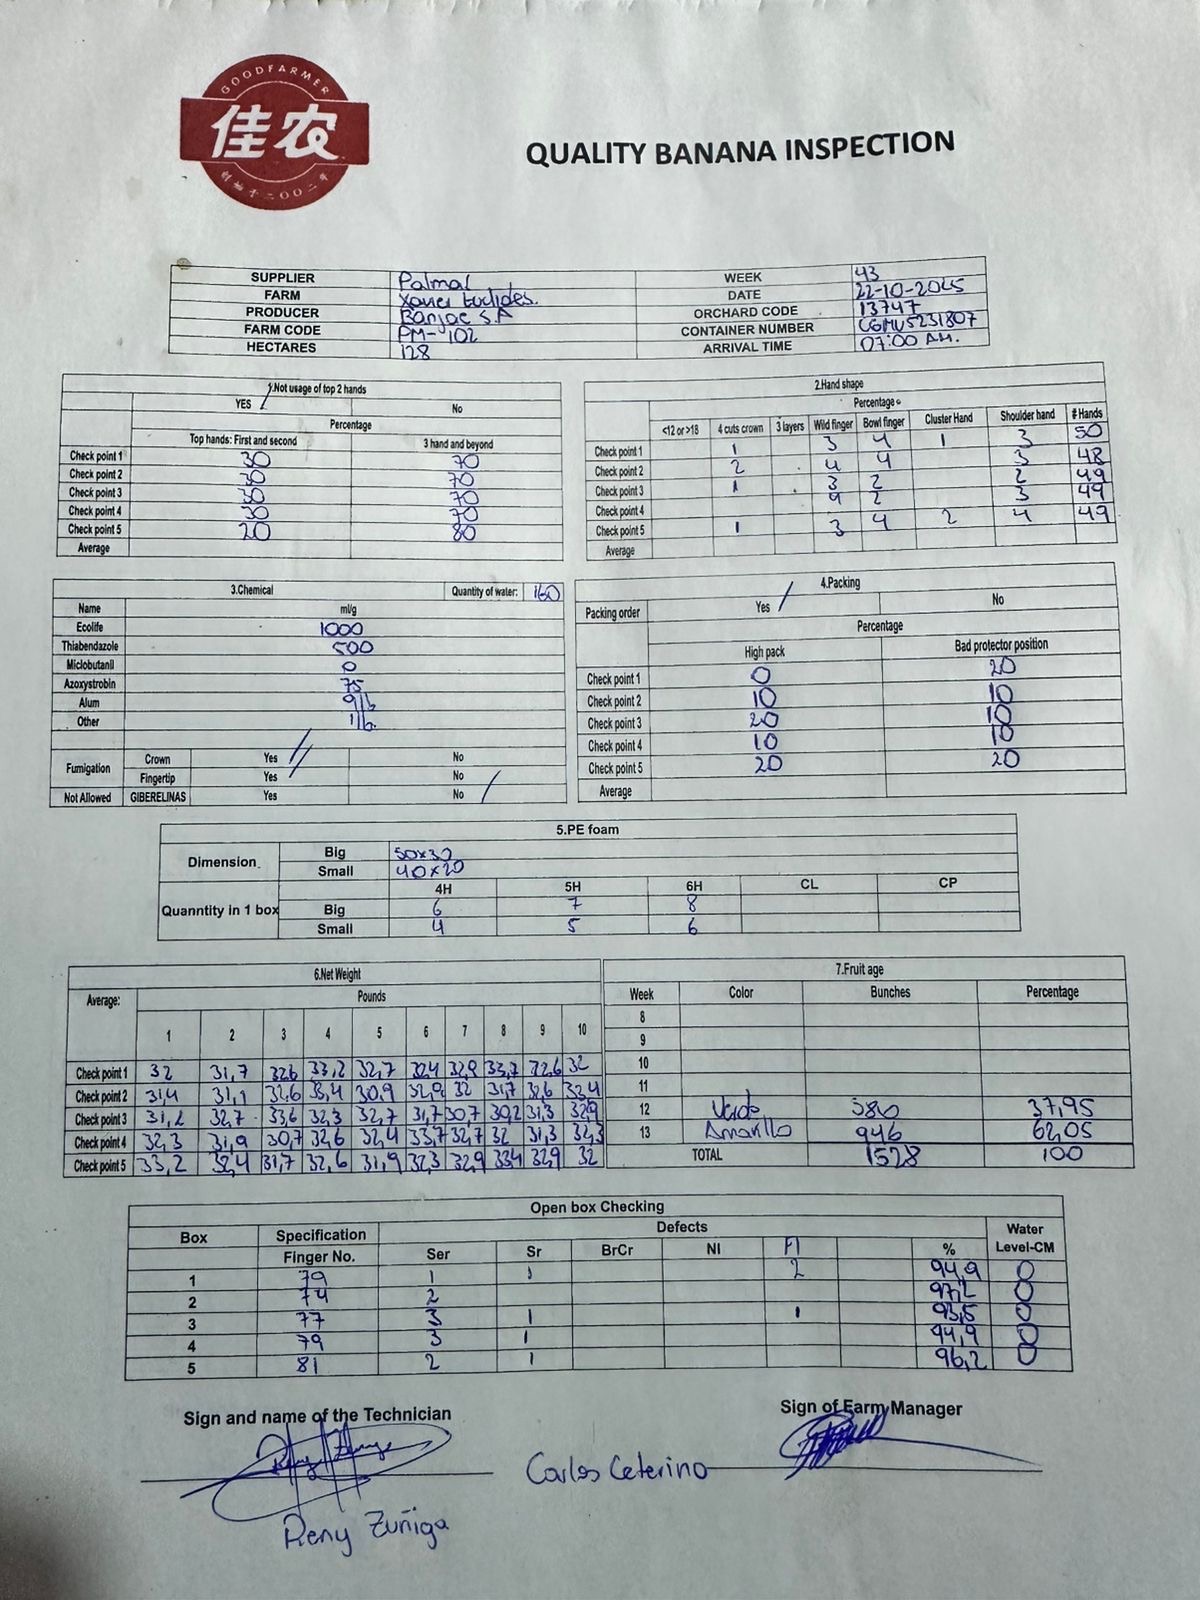 GOODFARMER
佳农
创始于二〇〇二年
QUALITY BANANA INSPECTION
SUPPLIER Palmal WEEK 43
FARM Xavier Euclides. DATE 22-10-2025
PRODUCER Banjae S.A ORCHARD CODE 13747
FARM CODE PM-102 CONTAINER NUMBER CGMU5231807
HECTARES 128 ARRIVAL TIME 07:00 AM.
1.Not usage of top 2 hands
YES / No
Percentage
Top hands: First and second 3 hand and beyond
Check point 1 30 70
Check point 2 30 70
Check point 3 30 70
Check point 4 30 70
Check point 5 20 80
Average
2.Hand shape
Percentage
<12 or >18 4 cuts crown 3 layers Wild finger Bowl finger Cluster Hand Shoulder hand # Hands
Check point 1 1 3 4 1 3 50
Check point 2 2 4 4 3 48
Check point 3 1 3 2 2 49
Check point 4 4 2 3 49
Check point 5 1 3 4 2 4 49
Average
3.Chemical Quantity of water: 160
Name ml/g
Ecolife 1000
Thiabendazole 500
Miclobutanil 0
Azoxystrobin 75
Alum 9lb
Other 1lb.
Fumigation Crown Yes / No
Fingertip Yes / No
Not Allowed GIBERELINAS Yes No /
4.Packing
Packing order Yes / No
Percentage
High pack Bad protector position
Check point 1 0 20
Check point 2 10 10
Check point 3 20 10
Check point 4 10 10
Check point 5 20 20
Average
5.PE foam
Dimension Big 50x32
Small 40x20
4H 5H 6H CL CP
Quanntity in 1 box Big 6 7 8
Small 4 5 6
6.Net Weight
Average: Pounds
1 2 3 4 5 6 7 8 9 10
Check point 1 32 31,7 32,6 33,2 32,7 32,4 32,9 33,7 32,6 32
Check point 2 31,4 31,1 32,6 33,4 30,9 32,9 32 31,7 32,6 33,4
Check point 3 31,2 32,7 33,6 32,3 32,7 31,7 30,7 30,2 31,3 32,9
Check point 4 32,3 31,9 30,7 32,6 32,4 33,7 32,7 32 31,3 32,3
Check point 5 33,2 32,4 31,7 32,6 31,9 32,3 32,9 33,4 32,9 32
7.Fruit age
Week Color Bunches Percentage
8
9
10
11
12 Verde 580 37,95
13 Amarillo 946 62,05
TOTAL 1528 100
Open box Checking
Box Specification Defects Water
Finger No. Ser Sr BrCr NI Fl % Level-CM
1 79 1 1 2 94,9 0
2 74 2 97,2 0
3 77 3 1 1 93,5 0
4 79 3 1 94,9 0
5 81 2 1 96,2 0
Sign and name of the Technician Sign of Farm Manager
Carlos Ceterino
Reny Zuñiga